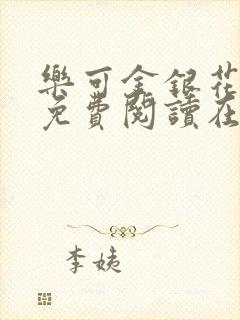 樂可金銀花
免費閱讀在
李姨